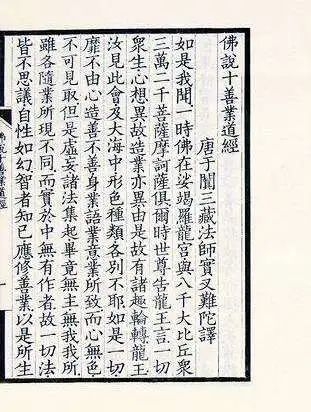 佛說十善業道經
唐于闐三藏法師實叉難陀譯
如是我聞一時佛在娑竭羅龍宮與八千大比丘眾
三萬二千菩薩摩訶薩俱爾時世尊告龍王言一切
眾生心想異故造業亦異由是故有諸趣輪轉龍王
汝見此會及大海中形色種類各別不耶如是一切
靡不由心造善不善身業語業意業所致而心無色
不可見取但是虛妄諸法集起畢竟無主無我我所
雖各隨業所現不同而實於中無有作者故一切法
皆不思議自性如幻智者知已應修善業以是所生
佛說十善業道經
一